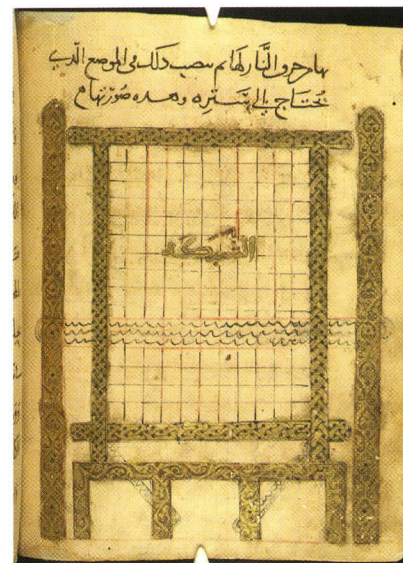 النار لها ثم ينصب ذلك في الموضع الذي
يحتاج إلى ستره وهذه صورتها
الشبكه